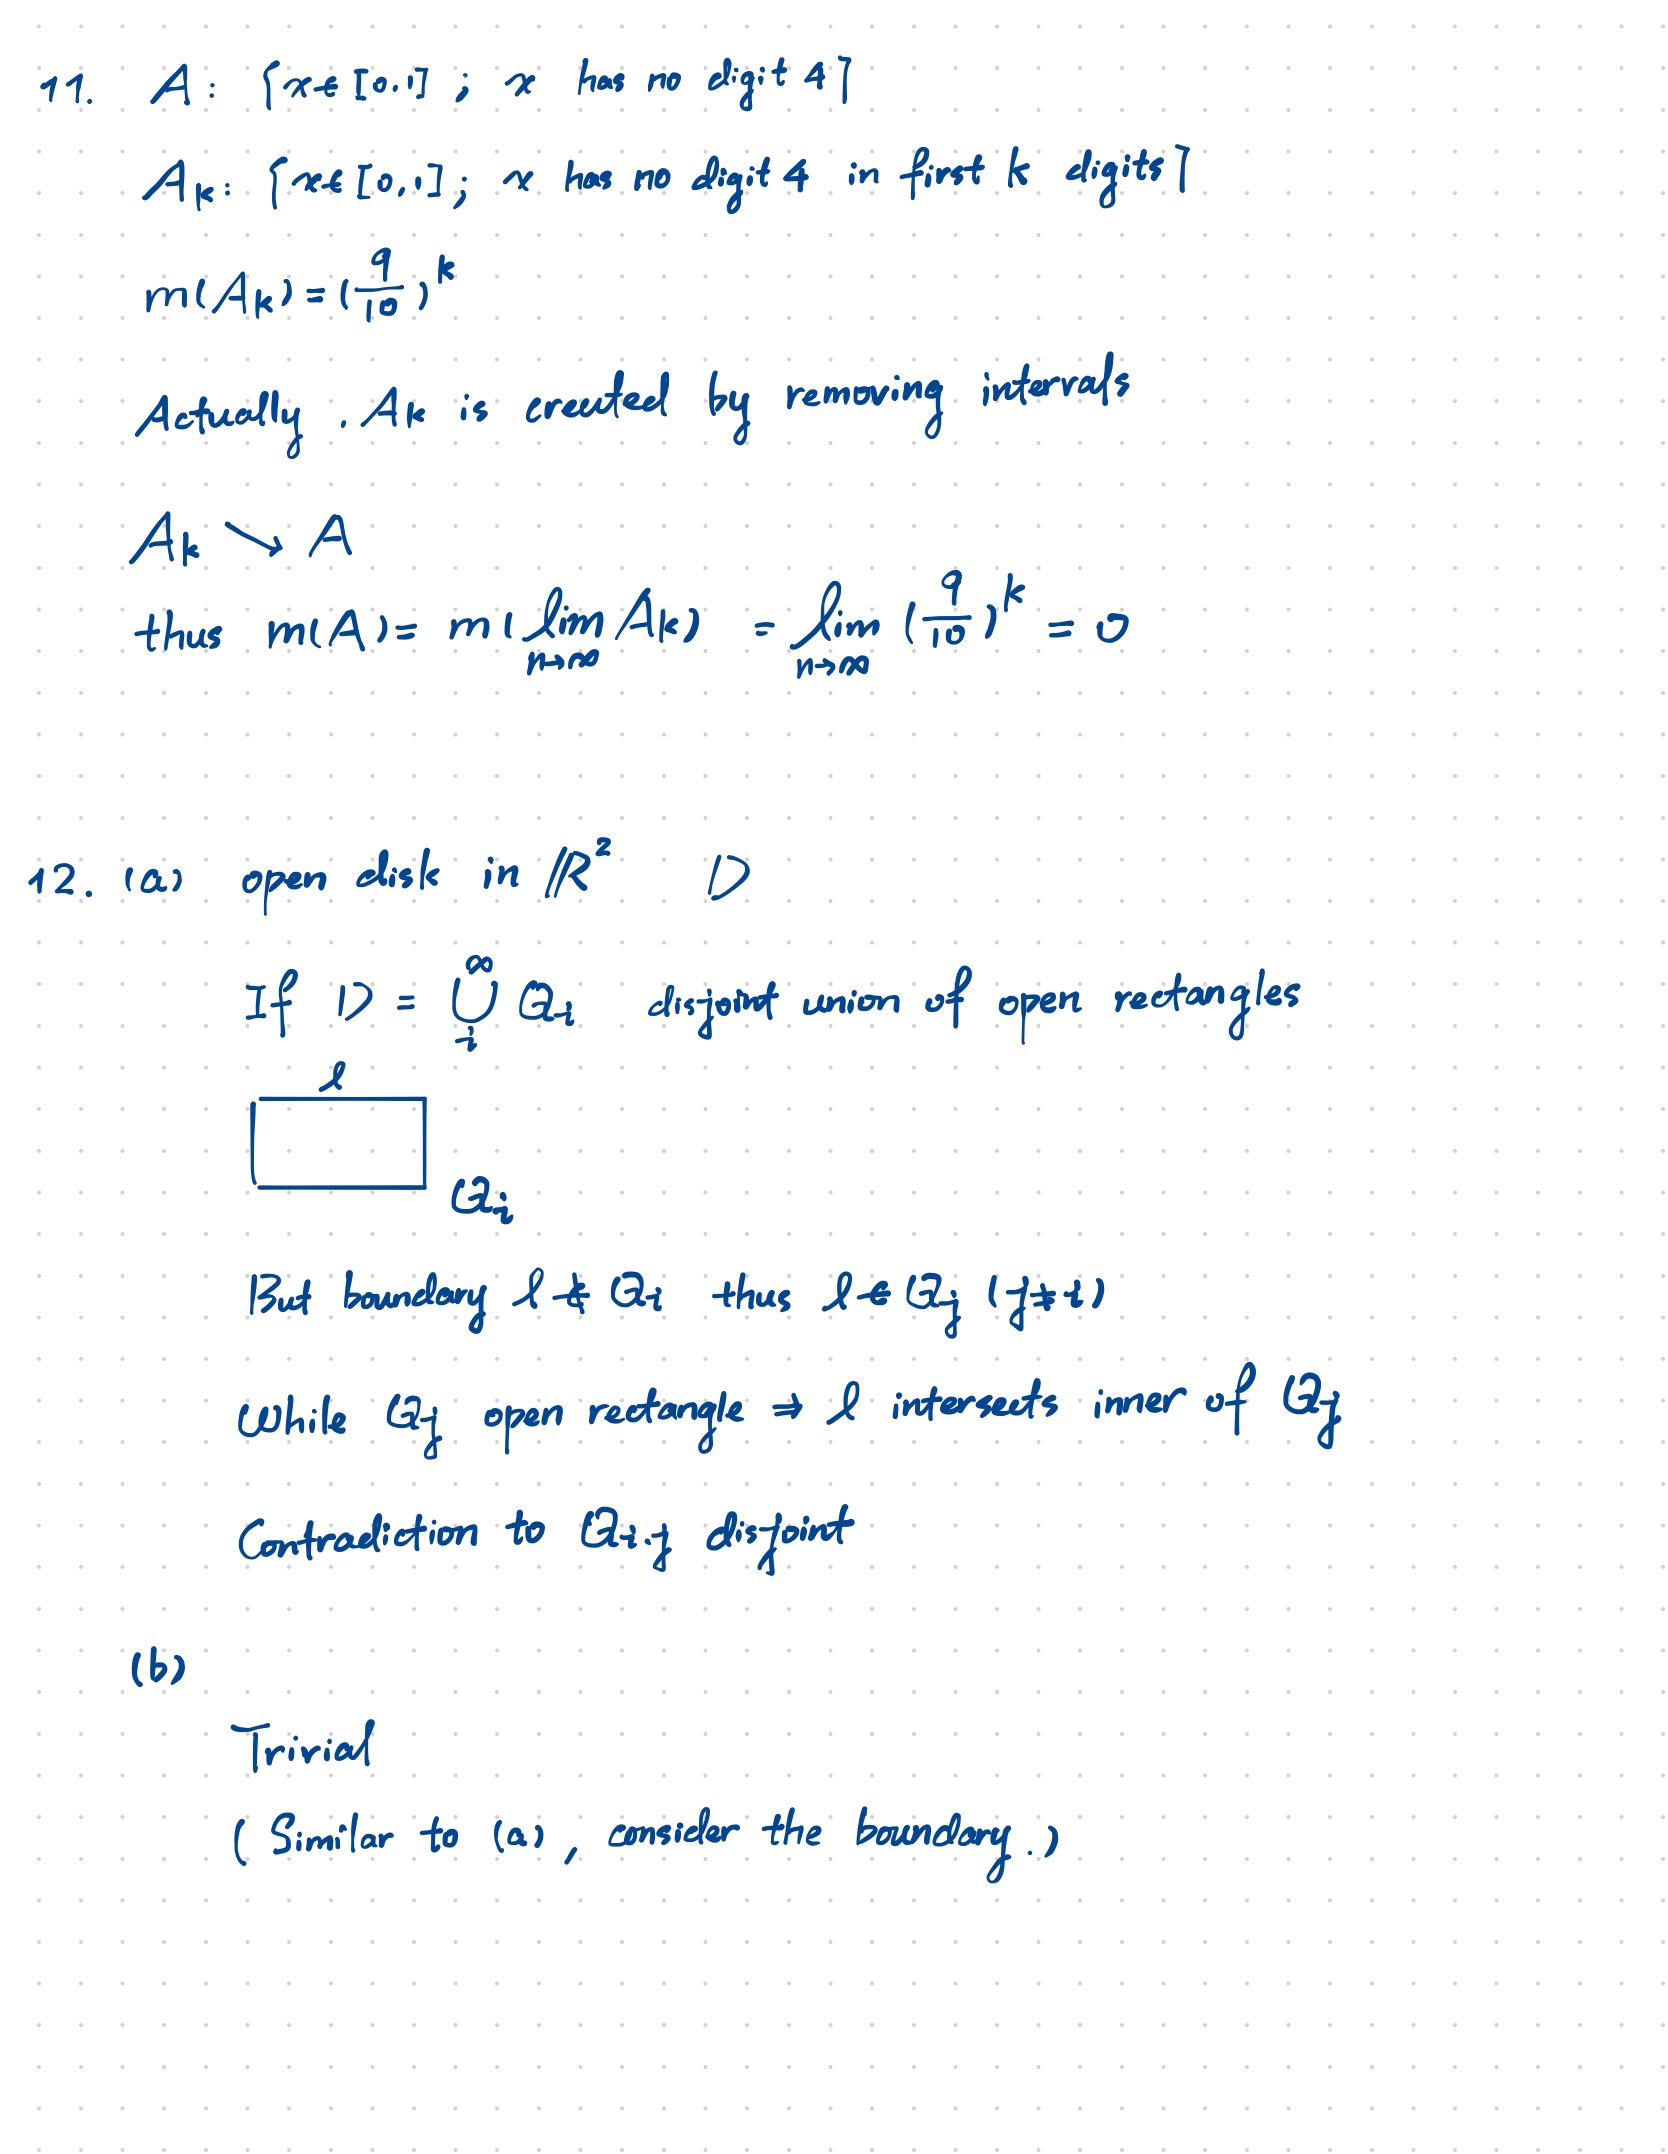 11. A: {x∈[0,1] ; x has no digit 4}
A_k: {x∈[0,1]; x has no digit 4 in first k digits}
m(A_k) = (9/10)^k
Actually, A_k is created by removing intervals
A_k ↘ A
thus m(A) = m(lim_{n→∞} A_k) = lim_{n→∞} (9/10)^k = 0
12. (a) open disk in ℝ² D
If D = ⋃_i^∞ Q_i disjoint union of open rectangles
l
Q_i
But boundary l ∉ Q_i thus l ∈ Q_j (j≠i)
While Q_j open rectangle ⇒ l intersects inner of Q_j
Contradiction to Q_{i,j} disjoint
(b)
Trivial
( Similar to (a), consider the boundary.)